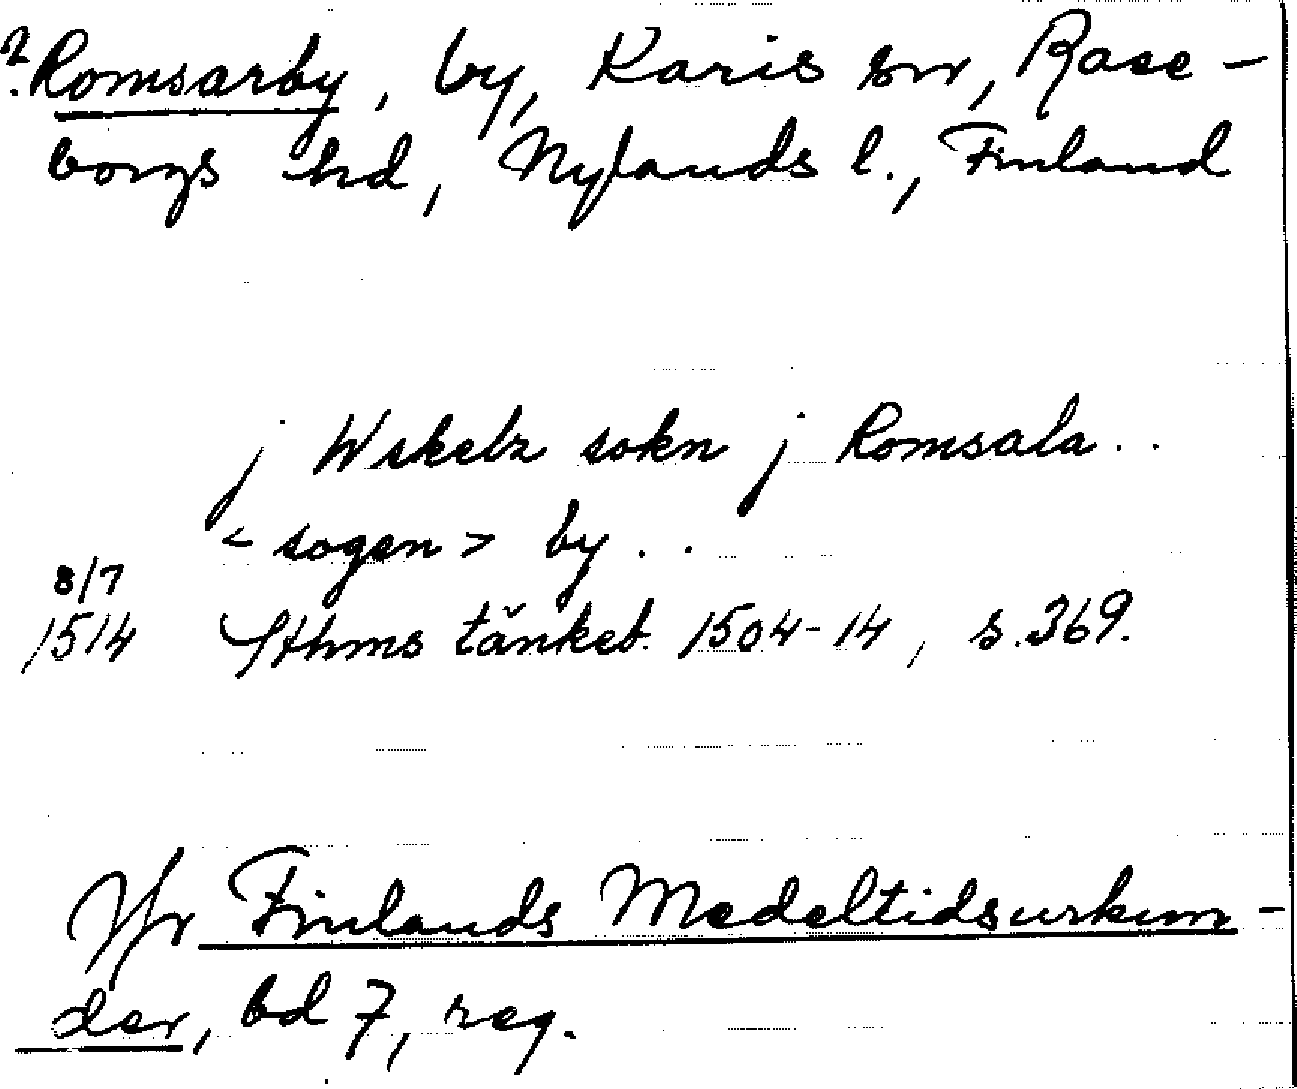 ? Romsarby, by, Karis sn, Rase-
borgs hd, Nylands l., Finland
j Wikelz sokn j Romsala . .
< sogen > by . .
8/7
1514 Sthms tänkeb. 1504-14, s. 369.
Jfr Finlands Medeltidsurkun-
der, bd 7, reg.